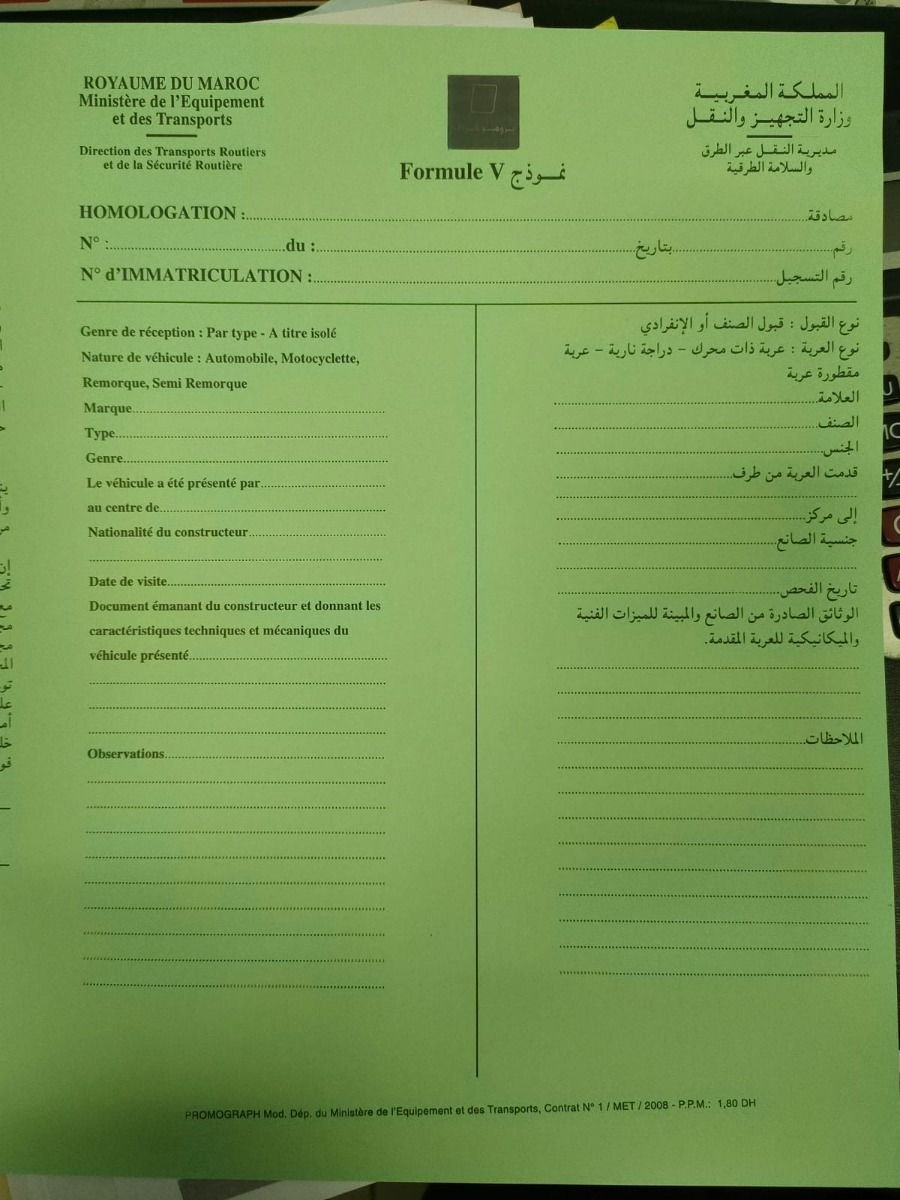 ROYAUME DU MAROC
Ministère de l'Equipement
et des Transports
Direction des Transports Routiers
et de la Sécurité Routière
المملكة المغربية
وزارة التجهيز والنقل
مديرية النقل عبر الطرق
والسلامة الطرقية
Formule V نموذج
HOMOLOGATION :.......... مصادقة
N° :..........du :..........بتاريخ..........رقم
N° d'IMMATRICULATION :..........رقم التسجيل
Genre de réception : Par type - A titre isolé
Nature de véhicule : Automobile, Motocyclette,
Remorque, Semi Remorque
Marque..........
Type..........
Genre..........
Le véhicule a été présenté par..........
au centre de..........
Nationalité du constructeur..........
Date de visite..........
Document émanant du constructeur et donnant les
caractéristiques techniques et mécaniques du
véhicule présenté..........
Observations..........
نوع القبول : قبول الصنف أو الإنفرادي
نوع العربة : عربة ذات محرك - دراجة نارية - عربة
مقطورة عربة
العلامة..........
الصنف..........
الجنس..........
قدمت العربة من طرف..........
إلى مركز..........
جنسية الصانع..........
تاريخ الفحص..........
الوثائق الصادرة من الصانع والمبينة للميزات الفنية
والميكانيكية للعربة المقدمة.
الملاحظات..........
PROMOGRAPH Mod. Dép. du Ministère de l'Equipement et des Transports, Contrat N° 1 / MET / 2008 - P.P.M.: 1,80 DH